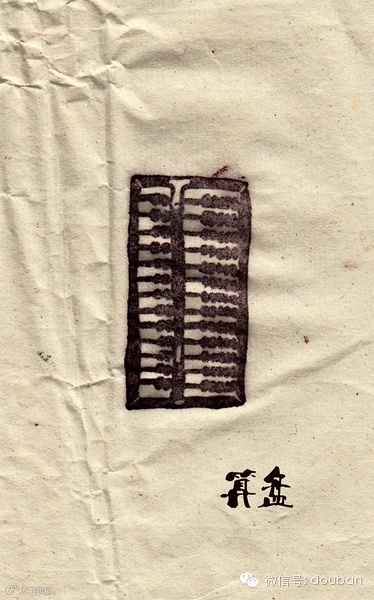 算盘
微信号: douban